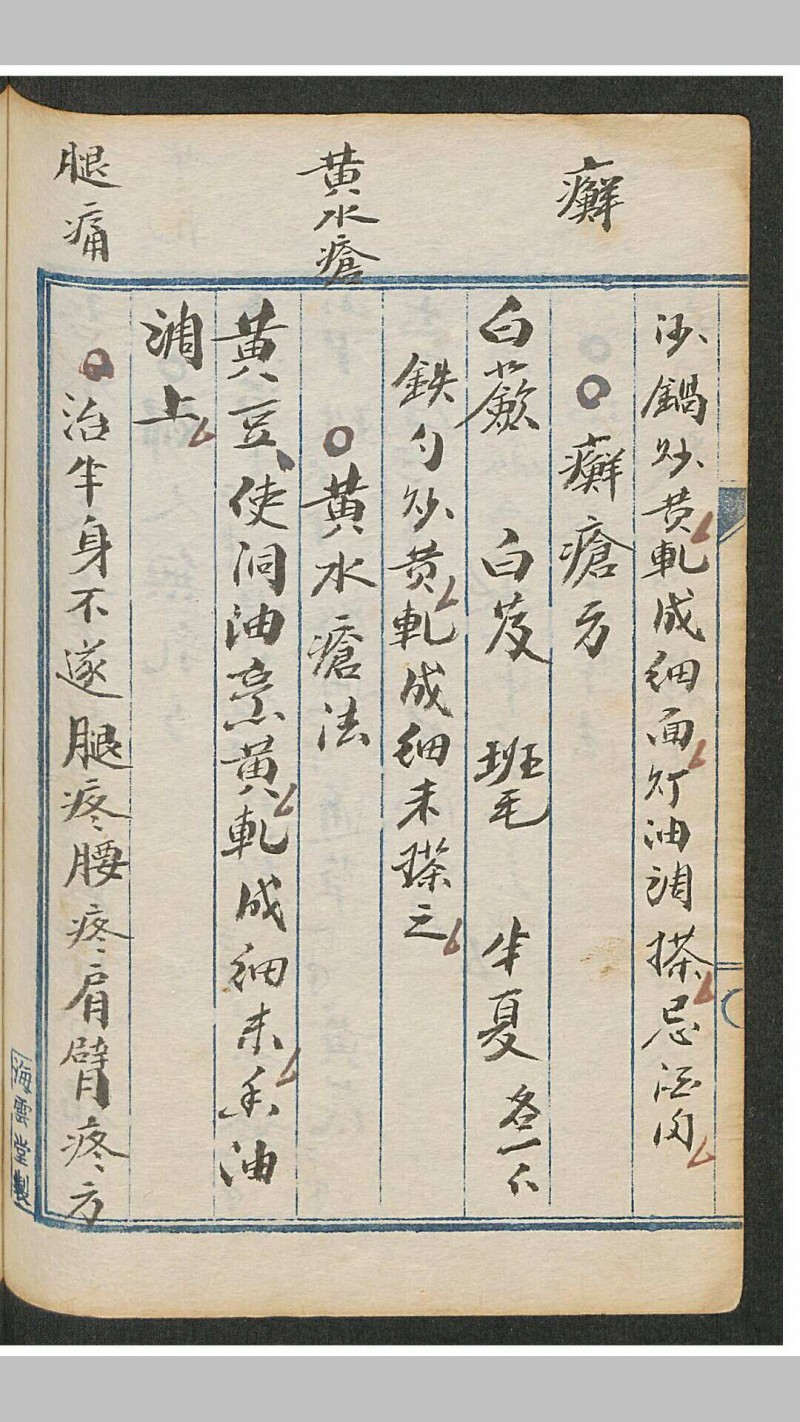 癬
黄水瘡
腿痛
沙鍋炒黄軋成細面灯油調搽忌酒肉
癬瘡方
白蔹 白芨 班毛 半夏 各一
鉄勺炒黄軋成細末搽之
黄水瘡法
黄豆使洞油烹黄軋成細末香油
調上
治半身不遂腿疼腰疼肩臂疼方
海雲堂製